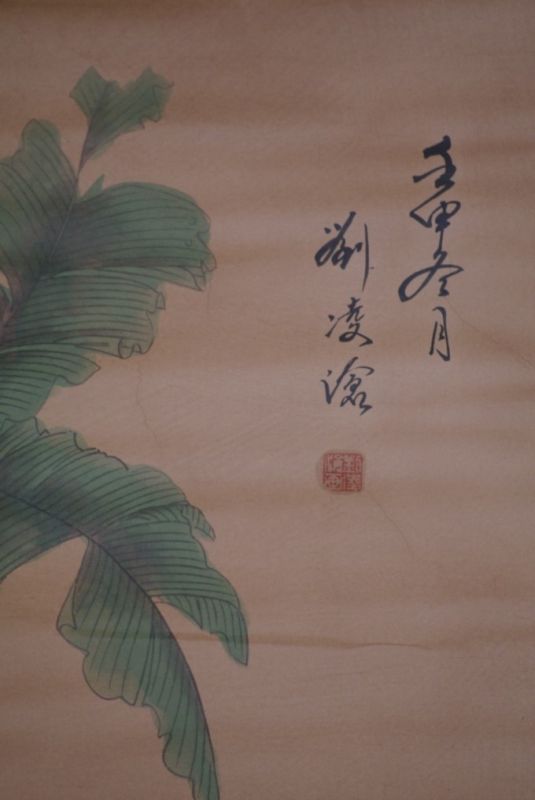 壬申冬月
劉凌滄